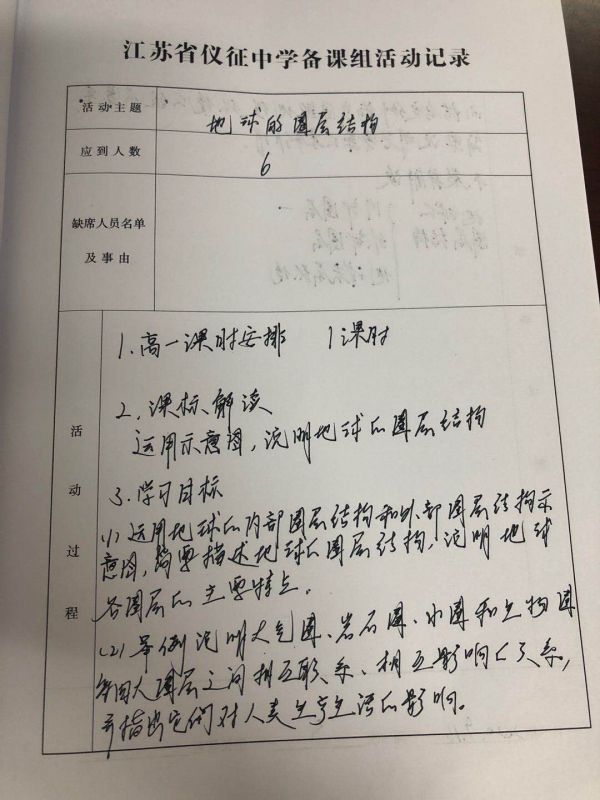 江苏省仪征中学备课组活动记录
活动主题
地球的圈层结构
应到人数
6
缺席人员名单
及事由
活动过程
1.高一课时安排 1课时
2.课标解读
运用示意图,说明地球的圈层结构
3.学习目标
(1)运用地球的内部圈层结构和外部圈层结构示
意图,简要描述地球的圈层结构,说明地球
各圈层的主要特点。
(2)举例说明大气圈、岩石圈、水圈和生物圈
等四大圈层之间相互联系、相互影响的关系,
并指出它们对人类生产生活的影响。